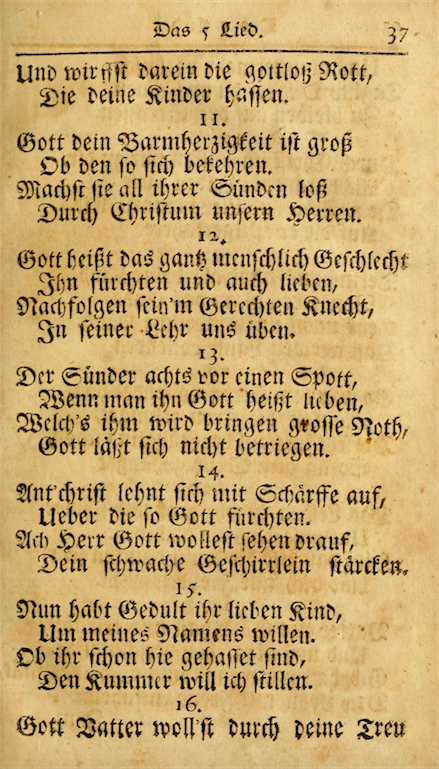 Das 5 Lied. 37
Und wirffst darein die gottloß Rott,
Die deine Kinder hassen.
11.
Gott dein Barmherzigkeit ist groß
Ob den so sich bekehren.
Machst sie all ihrer Sünden loß
Durch Christum unsern Herren.
12.
Gott heißt das gantz menschlich Geschlecht
Ihn fürchten und auch lieben,
Nachfolgen sein'm Gerechten Knecht,
In seiner Lehr uns üben.
13.
Der Sünder achts vor einen Spott,
Wenn man ihn Gott heißt lieben,
Welch's ihm wird bringen grosse Noth,
Gott läßt sich nicht betriegen.
14.
Ant'christ lehnt sich mit Schärffe auf,
Ueber die so Gott fürchten.
Ach Herr Gott wollest sehen drauf,
Dein schwache Geschirrlein stärcken.
15.
Nun habt Gedult ihr lieben Kind,
Um meines Namens willen.
Ob ihr schon hie gehasset sind,
Den Kummer will ich stillen.
16.
Gott Vatter woll'st durch deine Treu